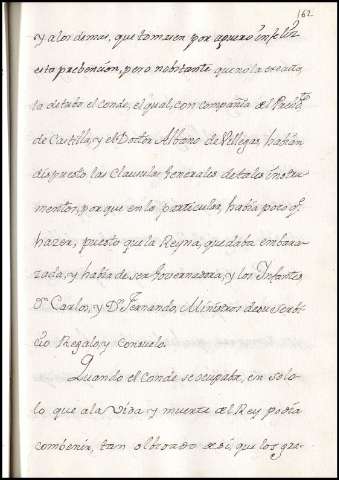 162
y alos demas, que tomasen por aguero infeliz
esta prebencion, pero nobstante que no la escusa
la detubo el conde, el qual, con compañia del Presid.te
de Castilla, y el Doctor Albaro de Villegas, habian
dispuesto las Clausulas generales de tales instru-
mentos, porque en lo particular, habia poco q.
hazer, puesto que la Reyna, quedaba embara-
zada, y habia de ser Governadora, y los Infantes
D.n Carlos, y D.n Fernando, Ministros de su servi-
cio Regalo, y consuelo.
Quando el Conde se ocupaba, en solo
lo que ala Vida y muerte del Rey podia
combenir, tan olbidado de si, que los que-